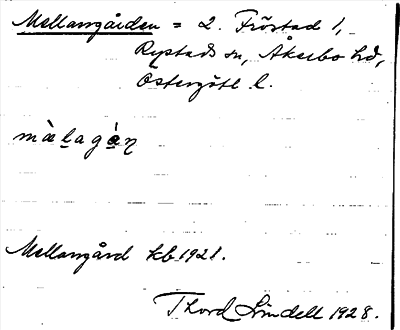 Mellangården = 2. Fröstad 1,
Rystads sn, Åkerbo hd,
Östergötl l.
mæ̀lagǻɳ
Mellangård kb 1921.
Thord Lindell 1928.